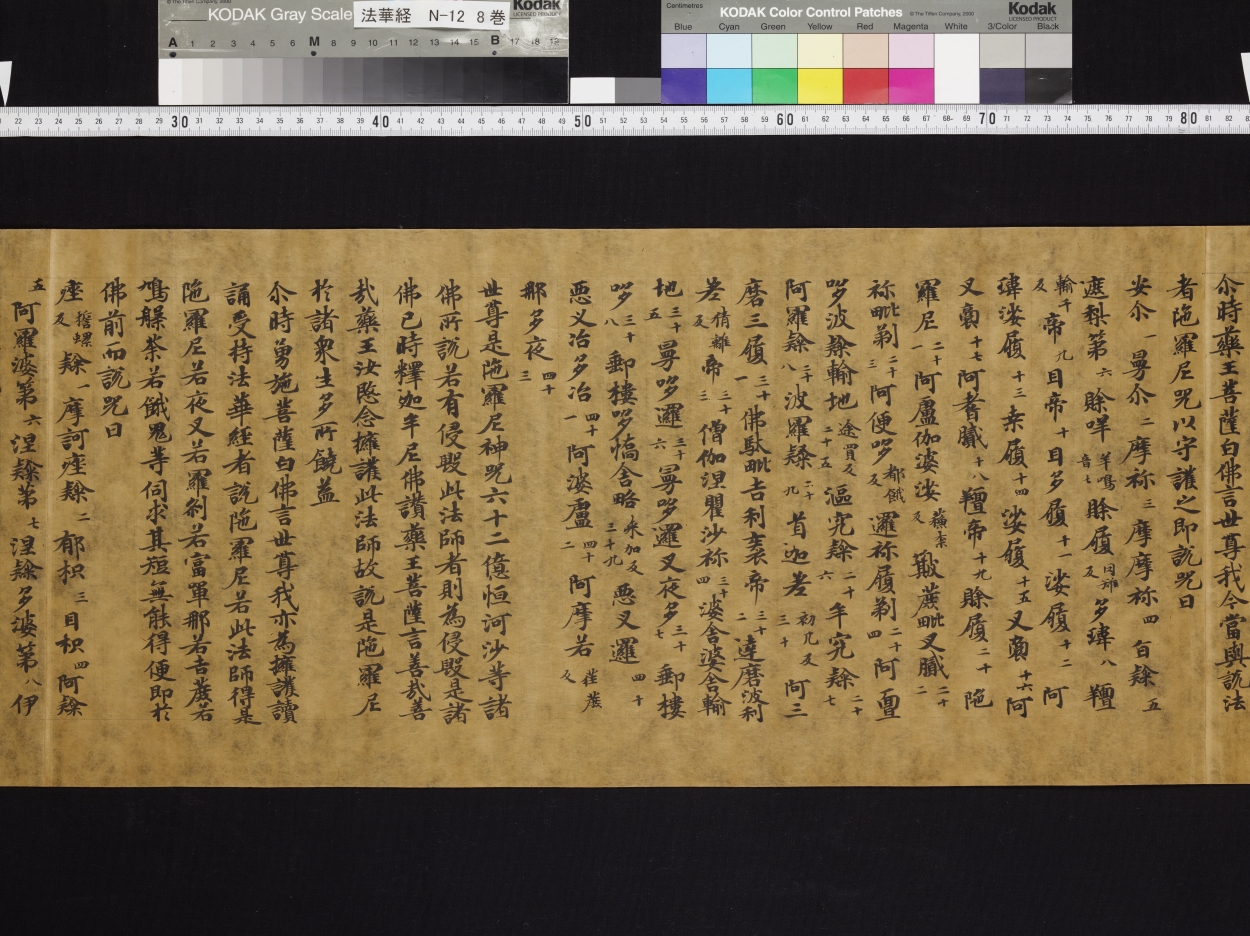 KODAK Gray Scale
法華経 N-12 8巻
Kodak
LICENSED PRODUCT
A 1 2 3 4 5 6 M 8 9 10 11 12 13 14 15 B 17 18 19
Centimetres
KODAK Color Control Patches
© The Tiffen Company, 2000
Kodak
LICENSED PRODUCT
Blue Cyan Green Yellow Red Magenta White 3/Color Black
尒時藥王菩薩白佛言世尊我今當與說法
者陁羅尼呪以守護之即說呪曰
安尒一曼尒二摩祢三摩摩祢四旨隸五
遮梨第六賒咩羊鳴音七賒履罔雉反多瑋八羶
輸千反帝九目帝十目多履十一娑履十二阿
瑋娑履十三桒履十四娑履十五叉裔十六阿
叉裔十七阿耆膩十八羶帝十九賒履二十陁
羅尼二十一阿盧伽婆娑蘇柰反簸蔗毗叉膩二十
二祢毗剃二十三阿便哆都餓反邏祢履剃二十四阿亶
哆波隸輸地途買反二十五漚究隸二十六牟究隸二十七
阿羅隸二十八波羅隸二十九首迦差初几反三十阿三
磨三履三十一佛馱毗吉利袠帝三十二達磨波利
差猜離反帝三十三僧伽涅瞿沙祢三十四婆舍婆舍輸
地三十五曼哆邏三十六曼哆邏叉夜多三十七郵樓
哆三十八郵樓哆憍舍略来加反三十九惡叉邏四十
惡叉冶多冶四十一阿婆盧四十二阿摩若荏蔗反
那多夜四十三
世尊是陁羅尼神呪六十二億恒河沙等諸
佛所說若有侵毀此法師者則為侵毀是諸
佛已時釋迦牟尼佛讚藥王菩薩言善哉善
哉藥王汝愍念擁護此法師故說是陁羅尼
於諸衆生多所饒益
尒時勇施菩薩白佛言世尊我亦為擁護讀
誦受持法華經者說陁羅尼若此法師得是
陁羅尼若夜叉若羅剎若富單那若吉蔗若
鳩槃荼若餓鬼等伺求其短無能得便即於
佛前而說呪曰
座誓螺反隸一摩訶座隸二郁枳三目枳四阿隸
五阿羅婆第六涅隸第七涅隸多婆第八伊